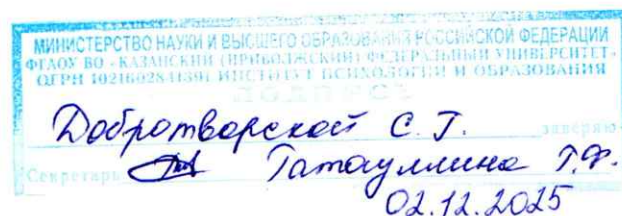 МИНИСТЕРСТВО НАУКИ И ВЫСШЕГО ОБРАЗОВАНИЯ РОССИЙСКОЙ ФЕДЕРАЦИИ
ФГАОУ ВО «КАЗАНСКИЙ (ПРИВОЛЖСКИЙ) ФЕДЕРАЛЬНЫЙ УНИВЕРСИТЕТ»
ОГРН 1021602841391 ИНСТИТУТ ПСИХОЛОГИИ И ОБРАЗОВАНИЯ
ПОДПИСЬ
Добротворской С. Г. заверяю
Секретарь Т.Ф.
02.12.2025